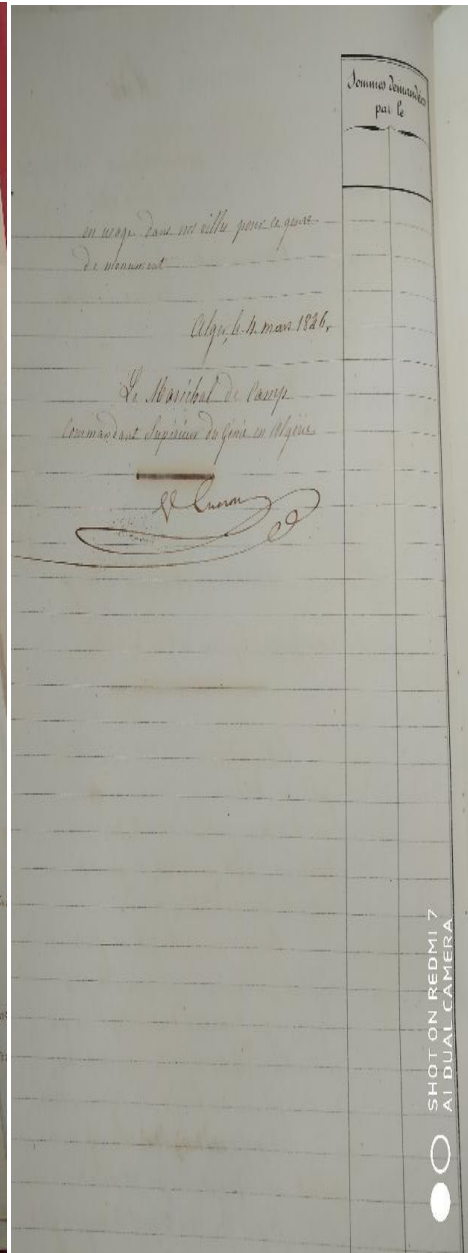 Sommes demandées
par le
en usage dans nos villes pour ce genre
de monument
Alger, le 4 mars 1846.
Le Maréchal de Camp
Commandant Supérieur du Génie en Algérie
SHOT ON REDMI 7
AI DUAL CAMERA